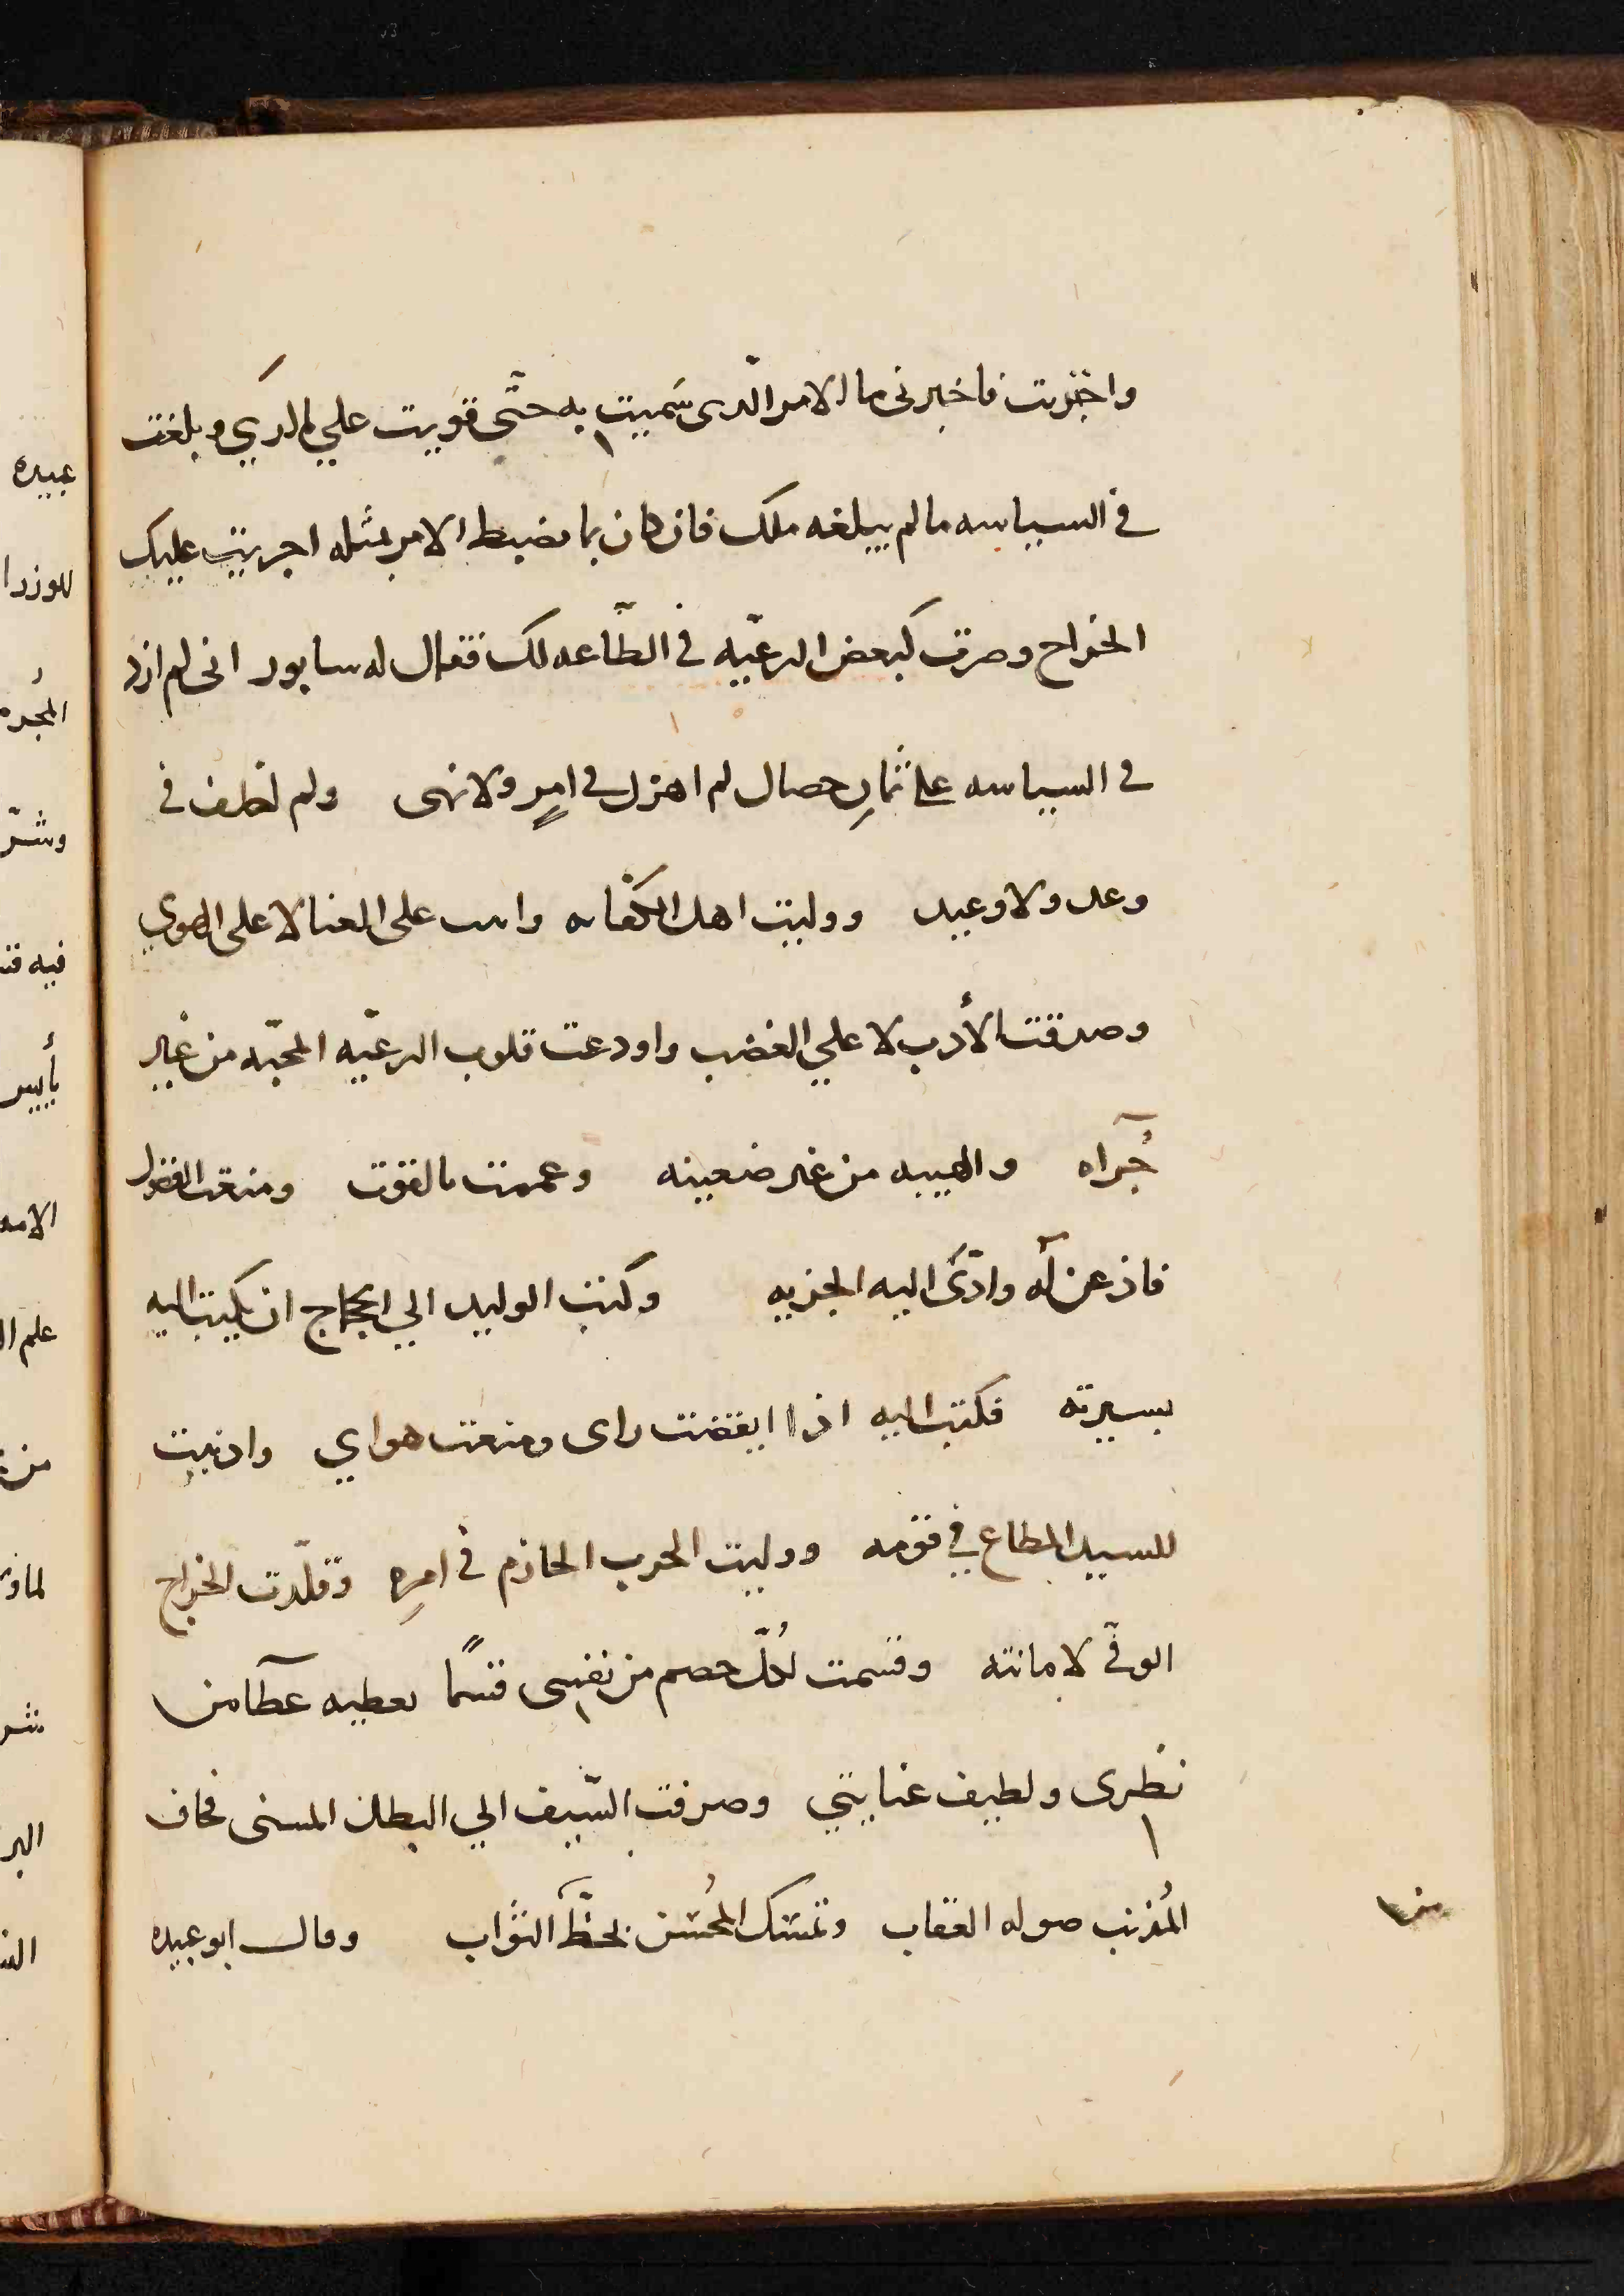 واخترت فاخبرنى ما الامر الّدى سَمييت به حتّى قويت علي المرَي وبلغت
في السياسه ما لم يبلغه ملك فان كان بما يضبط الامر بمثله اجريت عليك
الخراج وصرت كبعض الرعيّه في الطّاعه لك فقال له سابور انى لم ازد
في السياسه على ثمانِ خصال لم اهزل في امرٍ ولا نهى ولم اخلف في
وعد ولا وعيد ووليت اهل الكفايه واثبت على الغنا لا على الهوي
وصدقت الأدب لا علي الغضب واودعت قلوب الرعيّه المحبّه من غير
جُرآه والهيبه من غير ضعينه وعممت بالقوت ومنعت الفضول
فاذعن له وادّى اليه الجزيه وكتب الوليد الي الحجاج ان يكتب اليه
بسيرته فكتب اليه انى ايقضت راى ومنعت هواي وادنيت
للسيد المطاع في قومه ووليت الحرب الحازم في امرِه وقلّدت الخراج
الوفّى لامانته وقسمت لكُلّ خصم من نفسى قسمًا يعطيه عطآ من
نظرى ولطيف عنايتي وصرفت السّيف الي البطل المسى فخاف
المُذنب صوله العقاب وتمسّك المُحسن بحظّ الثواب وقال ابو عبيده
عبيده
للوزرا
وشرّ
الامه
شر